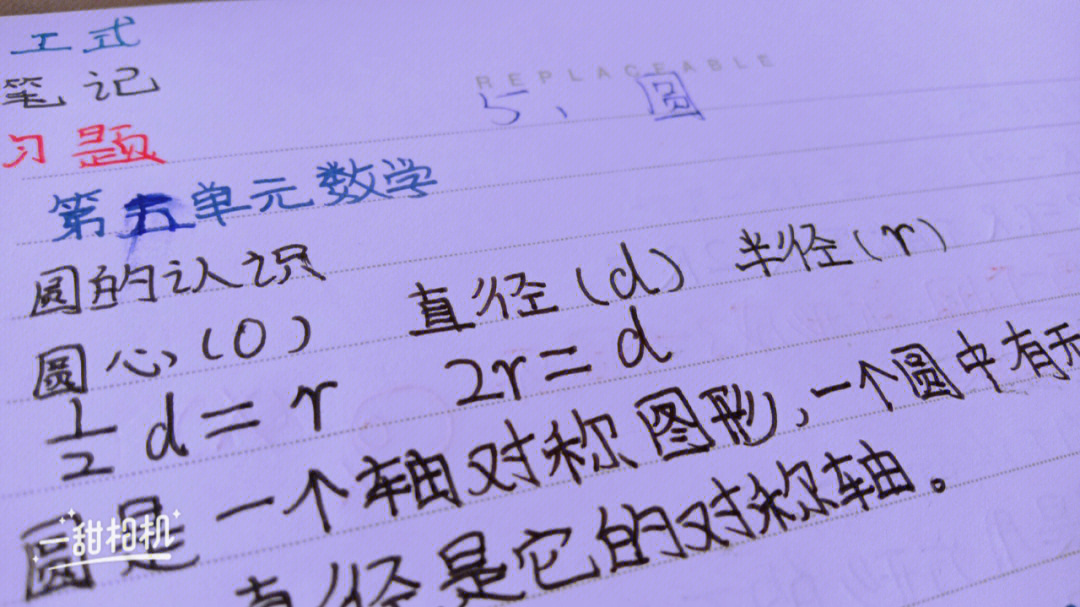 工式
笔记
REPLACEABLE
5、圆
习题
第五单元数学
圆的认识
圆心(O) 直径(d) 半径(r)
½d=r 2r=d
圆是一个轴对称图形,一个圆中有无
直径是它的对称轴。
一甜相机